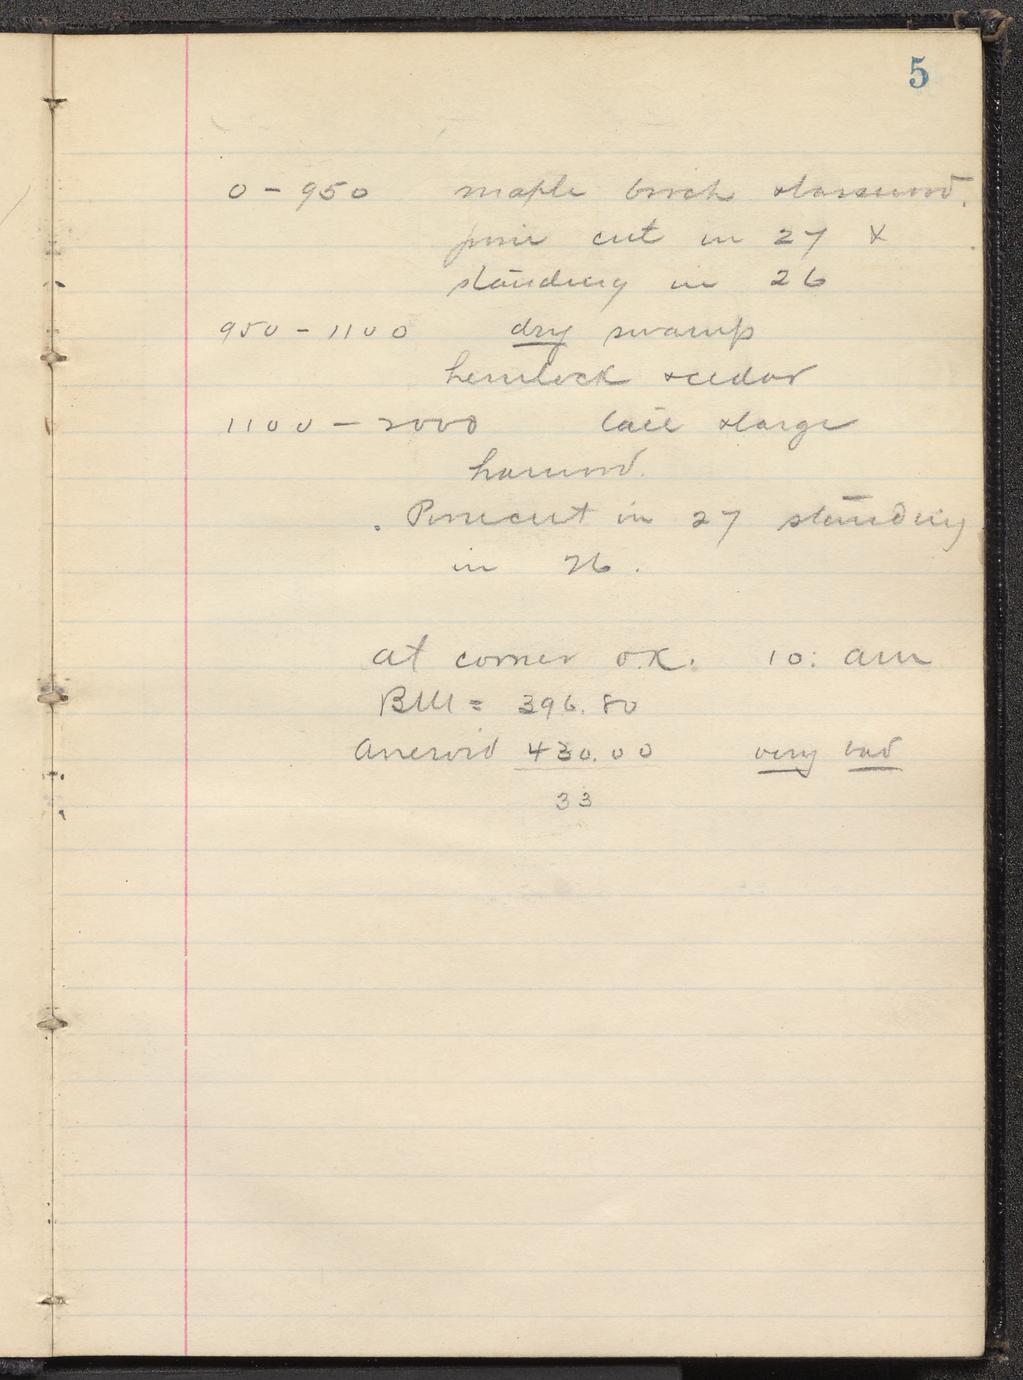 5
0 - 950 maple birch & basswood.
pine cut in 27 &
standing in 26
950 - 1100 dry swamp
hemlock & cedar
1100 - 2000 tall & large
harwood.
Pine cut in 27 standing
in 26.
at corner O.K. 10: am
BM = 396.80
Aneroid 430.00 very bad
33